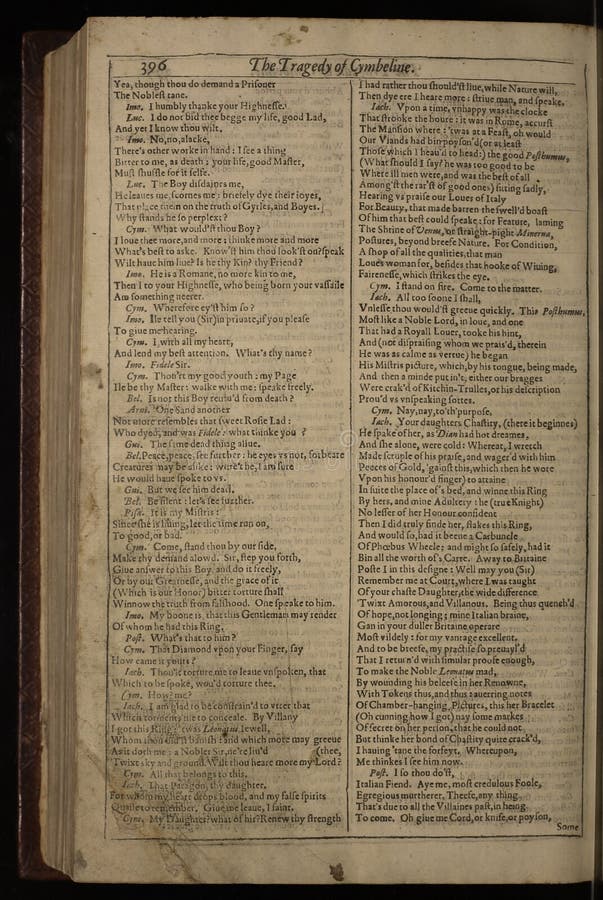 396
The Tragedy of Cymbeline.
Yea, though thou do demand a Prisoner
The Noblest tane.
Imo. I humbly thanke your Highnesse.
Luc. I do not bid thee begge my life, good Lad,
And yet I know thou wilt.
Imo. No, no, alacke,
There's other worke in hand: I see a thing
Bitter to me, as death: your life, good Master,
Must shuffle for it selfe.
Luc. The Boy disdaines me,
He leaues me, scornes me: briefely dye their ioyes,
That place them on the truth of Gyrles, and Boyes.
Why stands he so perplext?
Cym. What would'st thou Boy?
I loue thee more, and more: thinke more and more
What's best to aske. Know'st him thou look'st on? speak
Wilt haue him liue? Is he thy Kin? thy Friend?
Imo. He is a Romane, no more kin to me,
Then I to your Highnesse, who being born your vassaile
Am something neerer.
Cym. Wherefore ey'st him so?
Imo. Ile tell you (Sir) in priuate, if you please
To giue me hearing.
Cym. I, with all my heart,
And lend my best attention. What's thy name?
Imo. Fidele Sir.
Cym. Thou'rt my good youth: my Page
Ile be thy Master: walke with me: speake freely.
Bel. Is not this Boy reuiu'd from death?
Arui. One Sand another
Not more resembles that sweet Rosie Lad:
Who dyed, and was Fidele: what thinke you?
Gui. The same dead thing aliue.
Bel. Peace, peace, see further: he eyes vs not, forbeare
Creatures may be alike: were't he, I am sure
He would haue spoke to vs.
Gui. But we see him dead.
Bel. Be silent: let's see further.
Pisa. It is my Mistris:
Since she is liuing, let the time run on,
To good, or bad.
Cym. Come, stand thou by our side,
Make thy demand alowd. Sir, step you forth,
Giue answer to this Boy, and do it freely,
Or by our Greatnesse, and the grace of it
(Which is our Honor) bitter torture shall
Winnow the truth from falshood. One speake to him.
Imo. My boone is, that this Gentleman may render
Of whom he had this Ring.
Post. What's that to him?
Cym. That Diamond vpon your Finger, say
How came it yours?
Iach. Thou'lt torture me to leaue vnspoken, that
Which to be spoke, wou'd torture thee.
Cym. How? me?
Iach. I am glad to be constrain'd to vtter that
Which torments me to conceale. By Villany
I got this Ring: 'twas Leonatus Iewell,
Whom thou did'st banish: and which more may greeue
As it doth me: a Nobler Sir, ne're liu'd (thee,
'Twixt sky and ground. Wilt thou heare more my Lord?
Cym. All that belongs to this.
Iach. That Paragon, thy daughter,
For whom my heart drops blood, and my false spirits
Quaile to remember. Giue me leaue, I faint.
Cym. My Daughter? what of hir? Renew thy strength
I had rather thou should'st liue, while Nature will,
Then dye ere I heare more: striue man, and speake.
Iach. Vpon a time, vnhappy was the clocke
That strooke the houre: it was in Rome, accurst
The Mansion where: 'twas at a Feast, oh would
Our Viands had bin poyson'd (or at least
Those which I heau'd to head:) the good Posthumus,
(What should I say? he was too good to be
Where ill men were, and was the best of all
Among'st the rar'st of good ones) sitting sadly,
Hearing vs praise our Loues of Italy
For Beauty, that made barren the swell'd boast
Of him that best could speake: for Feature, laming
The Shrine of Venus, or straight-pight Minerua,
Postures, beyond breefe Nature. For Condition,
A shop of all the qualities, that man
Loues woman for, besides that hooke of Wiuing,
Fairenesse, which strikes the eye.
Cym. I stand on fire. Come to the matter.
Iach. All too soone I shall,
Vnlesse thou would'st greeue quickly. This Posthumus,
Most like a Noble Lord, in loue, and one
That had a Royall Louer, tooke his hint,
And (not dispraising whom we prais'd, therein
He was as calme as vertue) he began
His Mistris picture, which, by his tongue, being made,
And then a minde put in't, either our bragges
Were crak'd of Kitchin-Trulles, or his description
Prou'd vs vnspeaking sottes.
Cym. Nay, nay, to'th'purpose.
Iach. Your daughters Chastity, (there it beginnes)
He spake of her, as Dian had hot dreames,
And she alone, were cold: Whereat, I wretch
Made scruple of his praise, and wager'd with him
Peeces of Gold, 'gainst this, which then he wore
Vpon his honour'd finger) to attaine
In suite the place of's bed, and winne this Ring
By hers, and mine Adultery: he (true Knight)
No lesser of her Honour confident
Then I did truly finde her, stakes this Ring,
And would so, had it beene a Carbuncle
Of Phœbus Wheele; and might so safely, had it
Bin all the worth of's Carre. Away to Britaine
Poste I in this designe: Well may you (Sir)
Remember me at Court, where I was taught
Of your chaste Daughter, the wide difference
'Twixt Amorous, and Villanous. Being thus quench'd
Of hope, not longing; mine Italian braine,
Gan in your duller Britaine operate
Most vildely: for my vantage excellent.
And to be breefe, my practise so preuayl'd
That I return'd with simular proofe enough,
To make the Noble Leonatus mad,
By wounding his beleefe in her Renowne,
With Tokens thus, and thus: auerring notes
Of Chamber-hanging, Pictures, this her Bracelet
(Oh cunning how I got) nay some markes
Of secret on her person, that he could not
But thinke her bond of Chastity quite crack'd,
I hauing 'tane the forfeyt. Whereupon,
Me thinkes I see him now.
Post. I so thou do'st,
Italian Fiend. Aye me, most credulous Foole,
Egregious murtherer, Theefe, any thing
That's due to all the Villaines past, in being
To come. Oh giue me Cord, or knife, or poyson,
Some